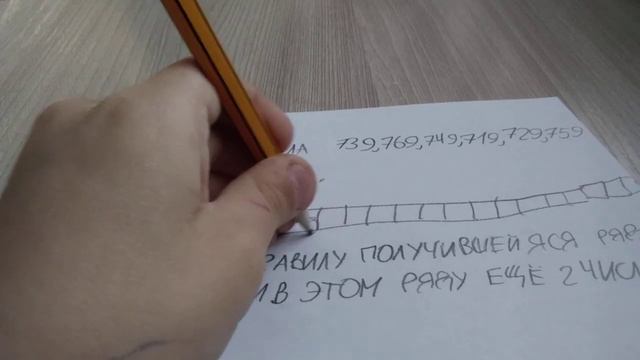 739,769,749,719,729,759
РАВИЛУ ПОЛУЧИВШЕЙЯСЯ РЯД
И В ЭТОМ РЯДУ ЕЩЁ 2 ЧИСЛ